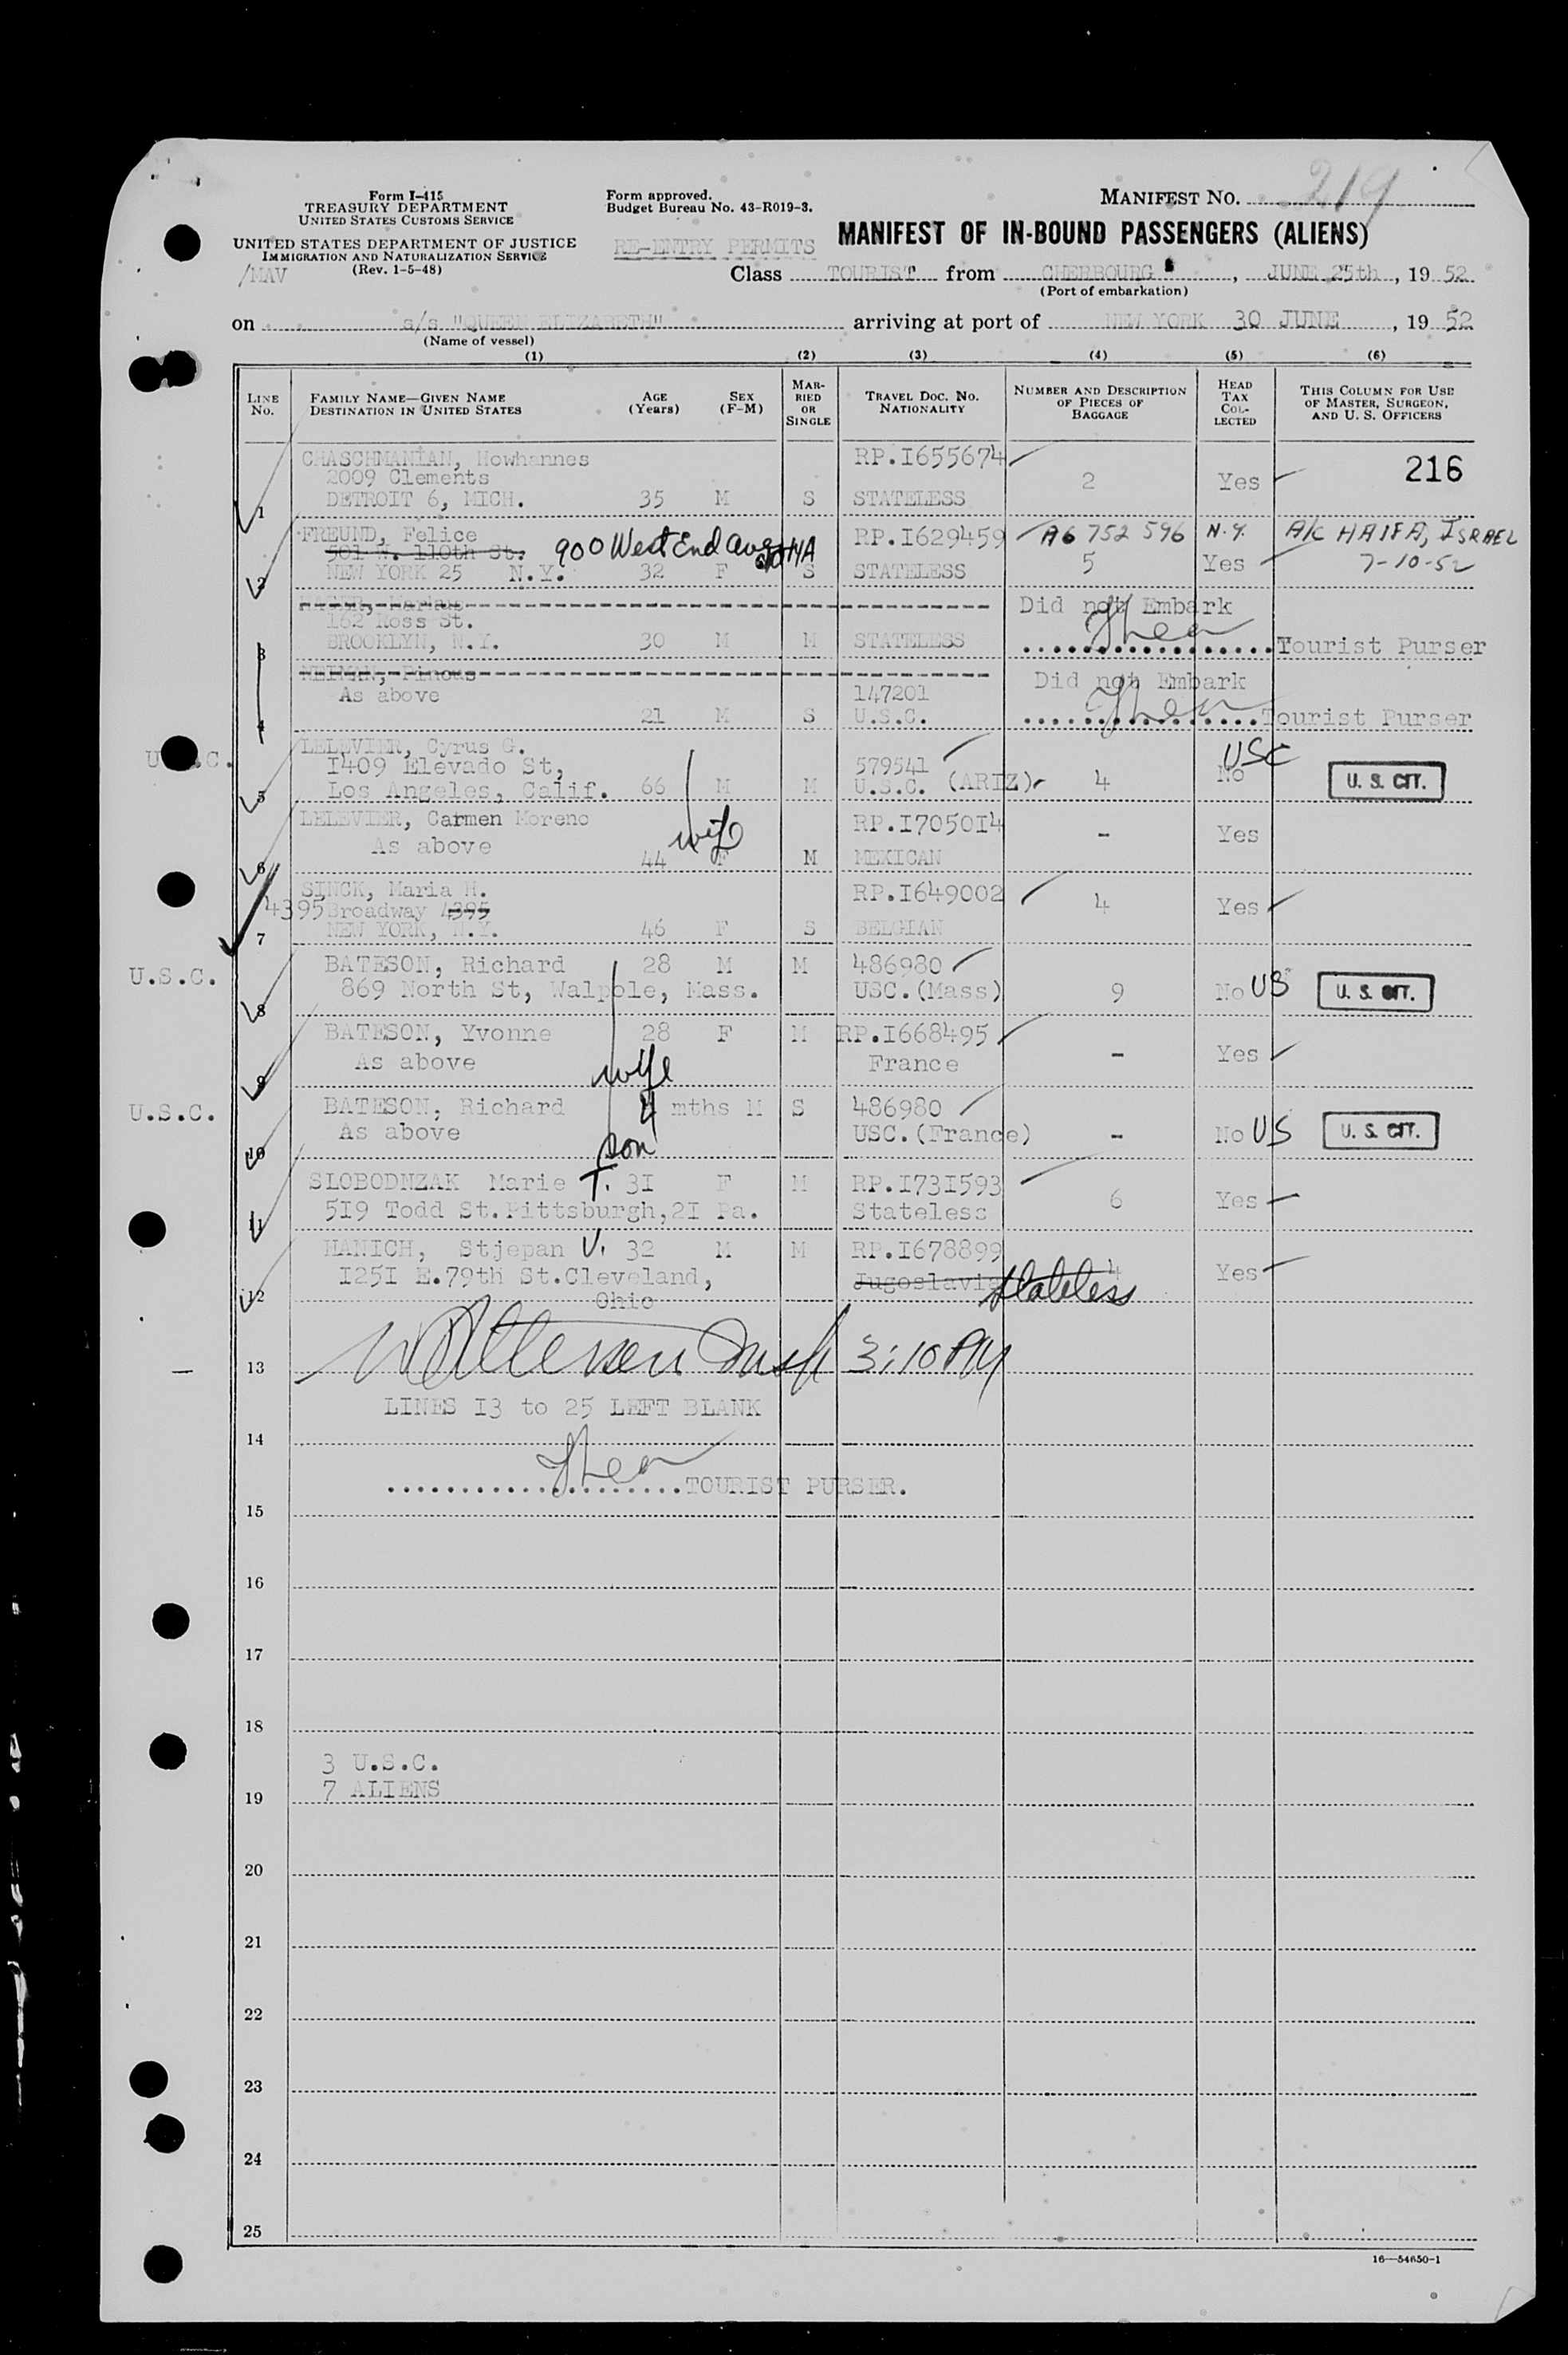 Form I-415
TREASURY DEPARTMENT
UNITED STATES CUSTOMS SERVICE
UNITED STATES DEPARTMENT OF JUSTICE
IMMIGRATION AND NATURALIZATION SERVICE
(Rev. 1-5-48)
/MAV
Form approved.
Budget Bureau No. 43-R019-3.
RE-ENTRY PERMITS
MANIFEST NO. 219
MANIFEST OF IN-BOUND PASSENGERS (ALIENS)
Class TOURIST from CHERBOURG, JUNE 25th, 19 52
(Port of embarkation)
on s/s "QUEEN ELIZABETH" arriving at port of NEW YORK 30 JUNE, 19 52
(Name of vessel)
(1) (2) (3) (4) (5) (6)
LINE No.
FAMILY NAME—GIVEN NAME
DESTINATION IN UNITED STATES
AGE (Years)
SEX (F-M)
MAR-RIED OR SINGLE
TRAVEL DOC. NO.
NATIONALITY
NUMBER AND DESCRIPTION OF PIECES OF BAGGAGE
HEAD TAX COL-LECTED
THIS COLUMN FOR USE OF MASTER, SURGEON, AND U. S. OFFICERS
CHASCHMANIAN, Howhannes RP.I655674 216
2009 Clements 2 Yes
1 DETROIT 6, MICH. 35 M S STATELESS
FREUND, Felice RP.I629459 A6 752 596 N.Y. A/C HAIFA, ISRAEL
501 W. 110th St. 900 West End Ave
2 NEW YORK 25 N.Y. 32 F S STATELESS 5 Yes 7-10-52
Did not Embark
162 Ross St.
3 BROOKLYN, N.Y. 30 M M STATELESS Tourist Purser
Did not Embark
As above 147201
4 21 M S U.S.C. Tourist Purser
LELEVIER, Cyrus G. USC
U.S.C. 1409 Elevado St, 579541 No
5 Los Angeles, Calif. 66 M M U.S.C. (ARIZ) 4 U. S. CIT.
LELEVIER, Carmen Moreno RP.I705014
As above wife - Yes
6 44 F M MEXICAN
SINCK, Maria H. RP.I649002
4395 Broadway 4395 4 Yes
7 NEW YORK, N.Y. 46 F S BELGIAN
U.S.C. BATESON, Richard 28 M M 486980
869 North St, Walpole, Mass. USC.(Mass) 9 No US U. S. CIT.
8
BATESON, Yvonne 28 F M RP.I668495
As above wife France - Yes
9
U.S.C. BATESON, Richard 4 mths M S 486980
As above son USC.(France) - No US U. S. CIT.
10
SLOBODNZAK Marie T. 31 F M RP.I731593
11 519 Todd St.Pittsburgh,21 Pa. Stateless 6 Yes
HANICH, Stjepan V. 32 M M RP.I678899
1251 E.79th St.Cleveland, Jugoslavia Stateless 4 Yes
12 Ohio
13 3:10 PM
LINES I3 to 25 LEFT BLANK
14
TOURIST PURSER.
15
16
17
18
3 U.S.C.
19 7 ALIENS
20
21
22
23
24
25
16—54650-1